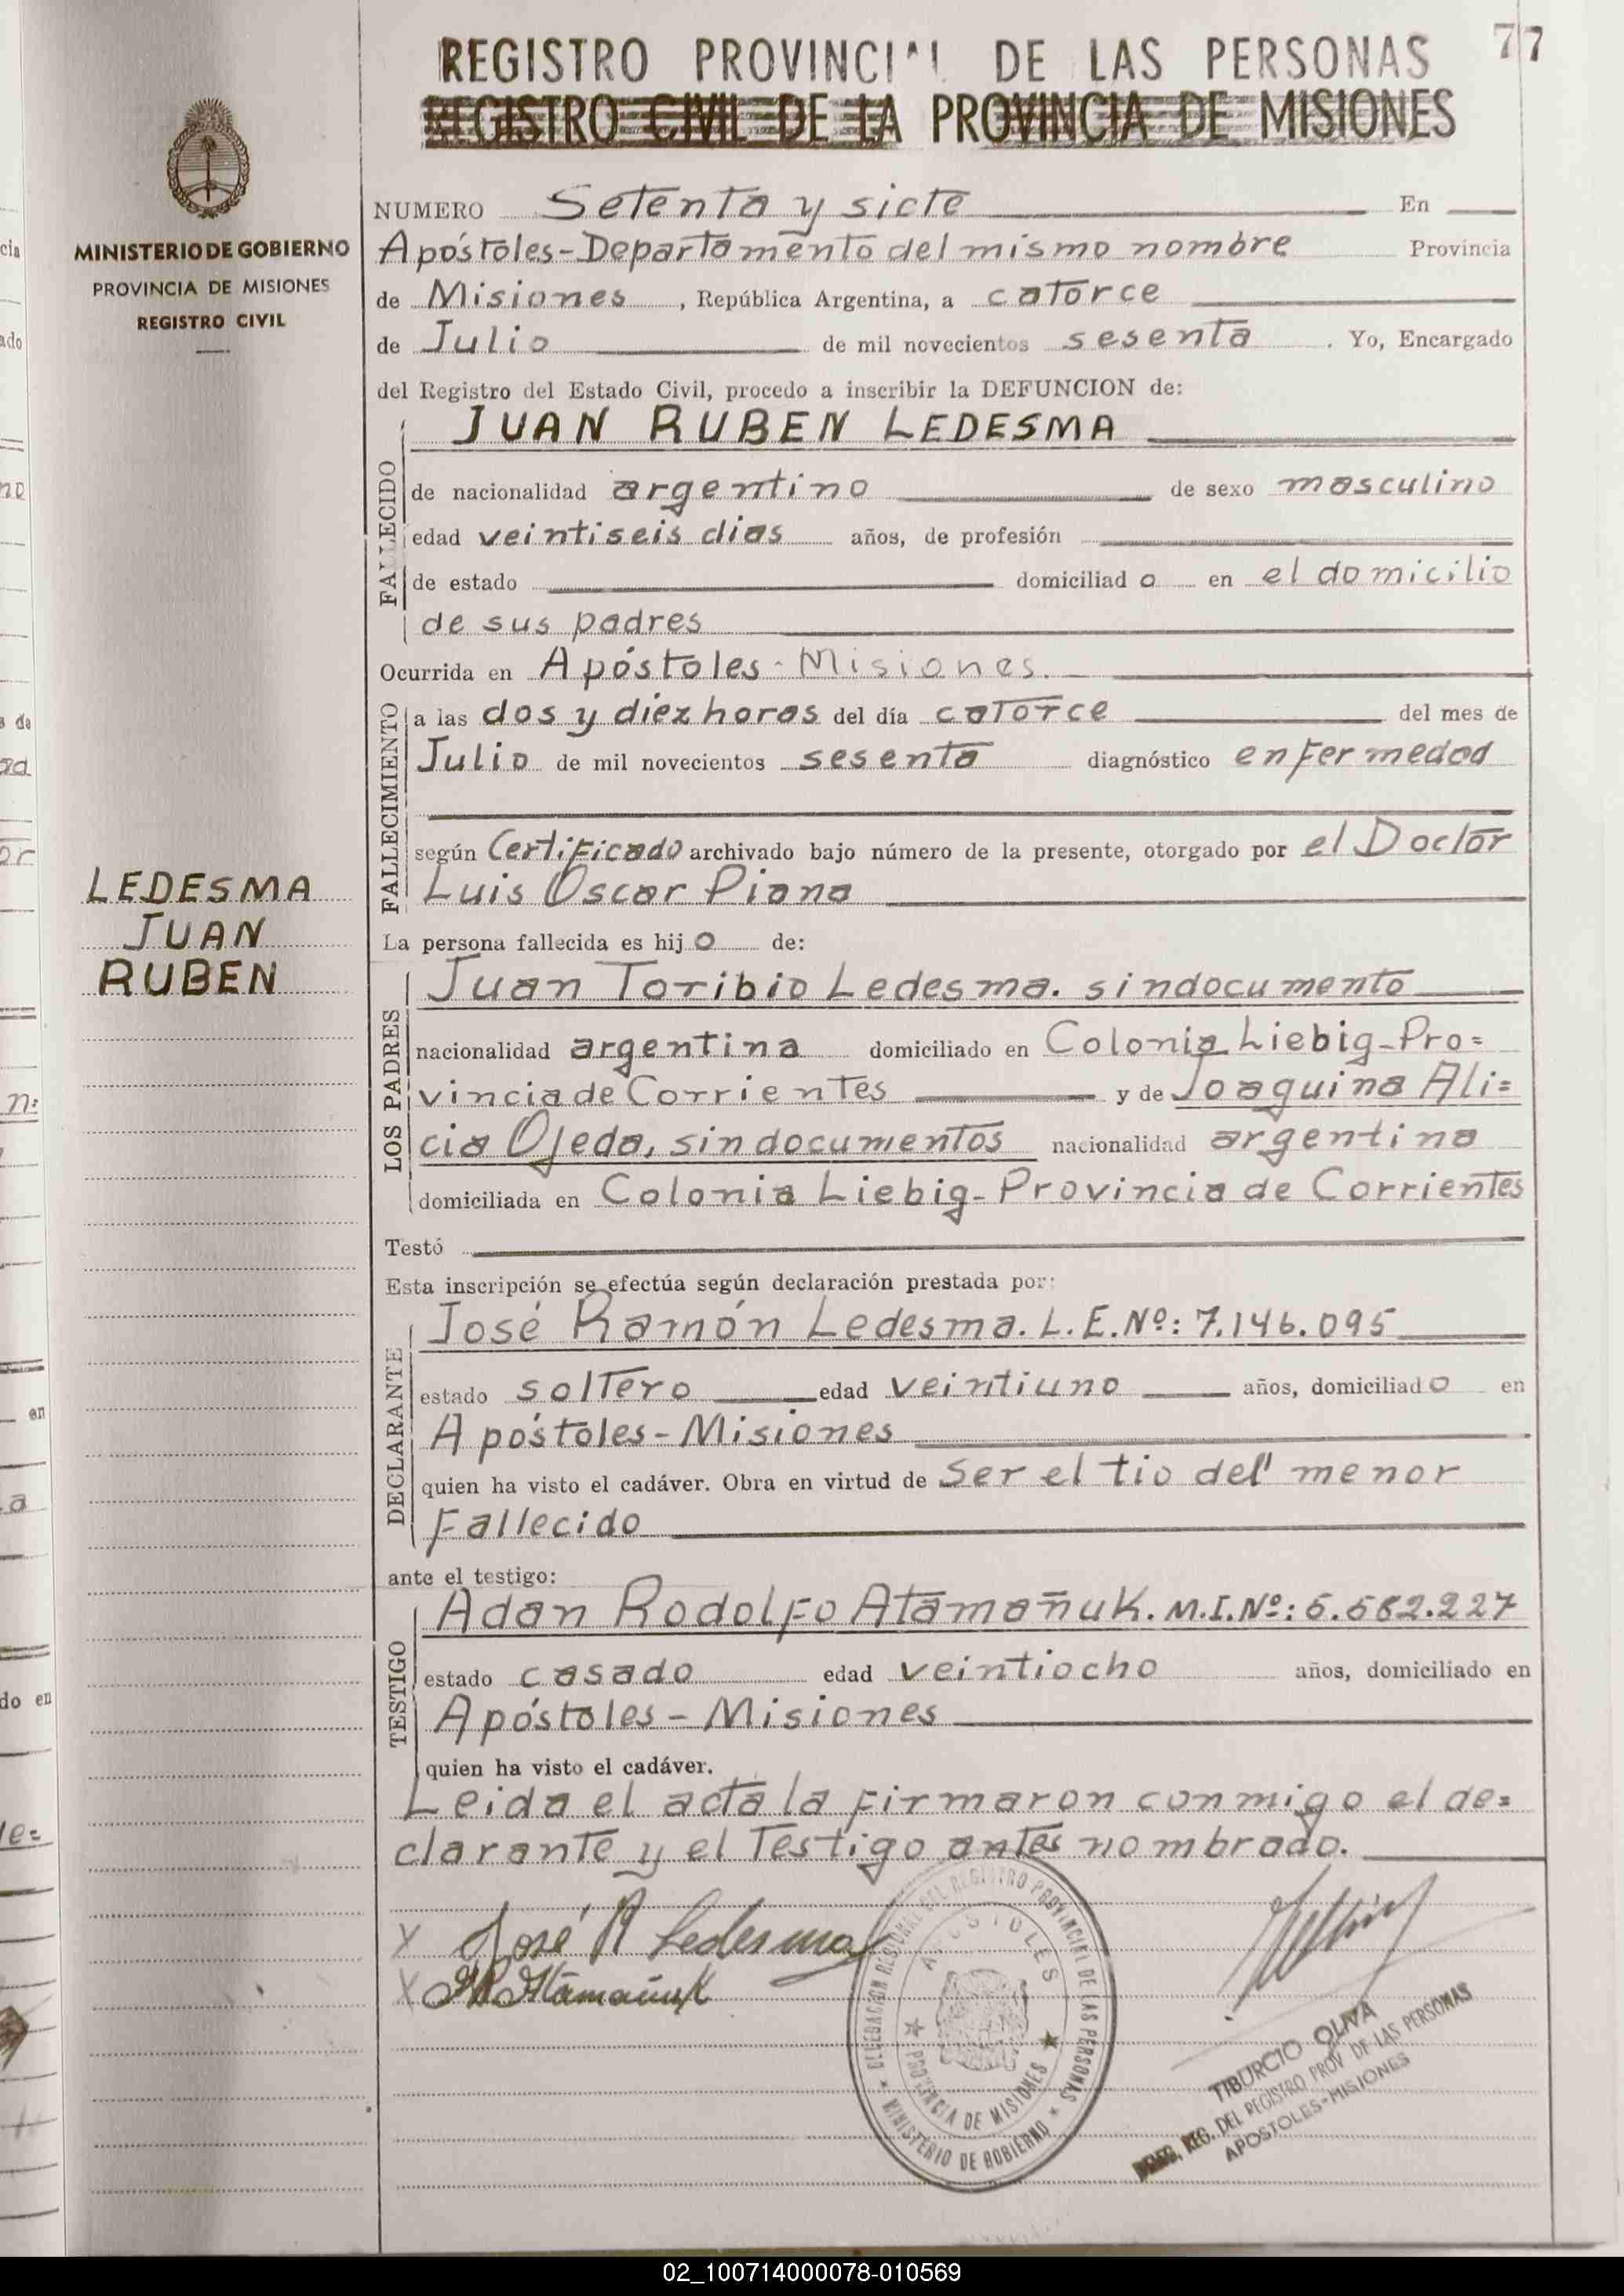 77
REGISTRO PROVINCIAL DE LAS PERSONAS
REGISTRO CIVIL DE LA PROVINCIA DE MISIONES
MINISTERIO DE GOBIERNO
PROVINCIA DE MISIONES
REGISTRO CIVIL
LEDESMA
JUAN
RUBEN
NUMERO Setenta y siete En
Apóstoles-Departamento del mismo nombre Provincia
de Misiones, República Argentina, a catorce
de Julio de mil novecientos sesenta. Yo, Encargado
del Registro del Estado Civil, procedo a inscribir la DEFUNCION de:
JUAN RUBEN LEDESMA
FALLECIDO
de nacionalidad argentino de sexo masculino
edad veintiseis dias años, de profesión
de estado domiciliado en el domicilio
de sus padres
Ocurrida en Apóstoles-Misiones.
FALLECIMIENTO
a las dos y diez horas del día catorce del mes de
Julio de mil novecientos sesenta diagnóstico enfermedad
según Certificado archivado bajo número de la presente, otorgado por el Doctor
Luis Oscar Piana
La persona fallecida es hijo de:
LOS PADRES
Juan Toribio Ledesma. sin documento
nacionalidad argentina domiciliado en Colonia Liebig-Pro=
vincia de Corrientes y de Joaquina Ali=
cia Ojeda, sin documentos nacionalidad argentina
domiciliada en Colonia Liebig-Provincia de Corrientes
Testó
Esta inscripción se efectúa según declaración prestada por:
DECLARANTE
José Ramón Ledesma. L.E.Nº: 7.146.095
estado soltero edad veintiuno años, domiciliado en
Apóstoles-Misiones
quien ha visto el cadáver. Obra en virtud de ser el tio del menor
Fallecido
ante el testigo:
TESTIGO
Adan Rodolfo Atamañuk. M.I.Nº: 5.582.227
estado casado edad veintiocho años, domiciliado en
Apóstoles-Misiones
quien ha visto el cadáver.
Leida el acta la firmaron conmigo el de=
clarante y el Testigo antes nombrado.
X José R Ledesma
X AR Atamañuk
DELEGACION REGIONAL DEL REGISTRO PROVINCIAL DE LAS PERSONAS
APOSTOLES
PROVINCIA DE MISIONES
MINISTERIO DE GOBIERNO
TIBURCIO OLIVA
REG. DEL REGISTRO PROV DE LAS PERSONAS
APOSTOLES-MISIONES
02_100714000078-010569